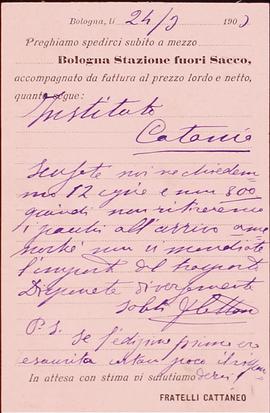 Bologna, li 24/3 190
Preghiamo spedirci subito a mezzo
Bologna Stazione fuori Sacco,
accompagnato da fattura al prezzo lordo e netto,
quanto segue:
Instituto
Catania
Scusate noi ne chiedem
mo 12 copie e non 800
quindi non ritireremo
i pacchi all'arrivo
nochè non ci mandiate
l'importo del trasporto
Disponete diversamente
P. S. Se l'edizione
esaurita poco
In attesa con stima vi salutiamo
FRATELLI CATTANEO